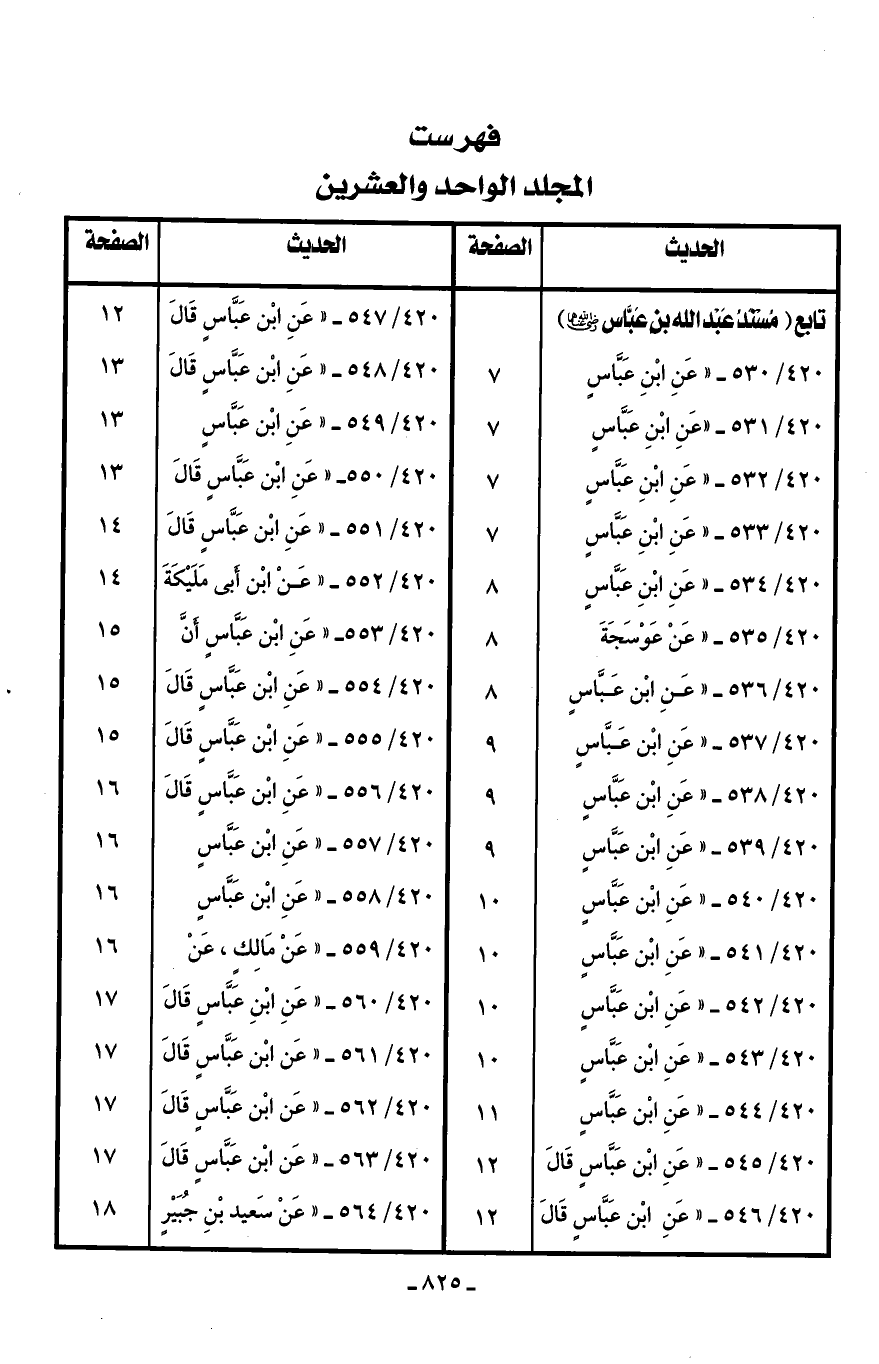 فهرست
المجلد الواحد والعشرين
الحديث الصفحة
تابع ( مُسْنَدُ عَبْد الله بن عَبَّاس رضي الله عنهما )
٤٢٠/ ٥٣٠ ـ « عَنِ ابْنِ عَبَّاسٍ ٧
٤٢٠/ ٥٣١ ـ «عَنِ ابْنِ عَبَّاسٍ ٧
٤٢٠/ ٥٣٢ ـ « عَنِ ابْنِ عَبَّاسٍ ٧
٤٢٠/ ٥٣٣ ـ « عَنِ ابْنِ عَبَّاسٍ ٧
٤٢٠/ ٥٣٤ ـ « عَنِ ابْنِ عَبَّاسٍ ٨
٤٢٠/ ٥٣٥ ـ « عَنْ عَوْسَجَةَ ٨
٤٢٠/ ٥٣٦ ـ « عَـنِ ابْنِ عَـبَّاسٍ ٨
٤٢٠/ ٥٣٧ ـ « عَنِ ابْنِ عَـبَّاسٍ ٩
٤٢٠/ ٥٣٨ ـ « عَنِ ابْنِ عَبَّاسٍ ٩
٤٢٠/ ٥٣٩ ـ « عَنِ ابْنِ عَبَّاسٍ ٩
٤٢٠/ ٥٤٠ ـ « عَنِ ابْنِ عَبَّاسٍ ١٠
٤٢٠/ ٥٤١ ـ « عَنِ ابْنِ عَبَّاسٍ ١٠
٤٢٠/ ٥٤٢ ـ « عَنِ ابْنِ عَبَّاسٍ ١٠
٤٢٠/ ٥٤٣ ـ « عَنِ ابْنِ عَبَّاسٍ ١٠
٤٢٠/ ٥٤٤ ـ « عَنِ ابْنِ عَبَّاسٍ ١١
٤٢٠/ ٥٤٥ ـ « عَنِ ابْنِ عَبَّاسٍ قَالَ ١٢
٤٢٠/ ٥٤٦ ـ « عَنِ ابْنِ عَبَّاسٍ قَالَ ١٢
الحديث الصفحة
٤٢٠/ ٥٤٧ ـ « عَنِ ابْنِ عَبَّاسٍ قَالَ ١٢
٤٢٠/ ٥٤٨ ـ « عَنِ ابْنِ عَبَّاسٍ قَالَ ١٣
٤٢٠/ ٥٤٩ ـ « عَنِ ابْنِ عَبَّاسٍ ١٣
٤٢٠/ ٥٥٠ـ « عَنِ ابْنِ عَبَّاسٍ قَالَ ١٣
٤٢٠/ ٥٥١ ـ « عَنِ ابْنِ عَبَّاسٍ قَالَ ١٤
٤٢٠/ ٥٥٢ ـ « عَـنْ ابْنِ أَبى مَلَيْكَةَ ١٤
٤٢٠/ ٥٥٣ـ « عَنِ ابْنِ عَبَّاسٍ أَنَّ ١٥
٤٢٠/ ٥٥٤ ـ « عَنِ ابْنِ عَبَّاسٍ قَالَ ١٥
٤٢٠/ ٥٥٥ ـ « عَنِ ابْنِ عَبَّاسٍ قَالَ ١٥
٤٢٠/ ٥٥٦ ـ « عَنِ ابْنِ عَبَّاسٍ قَالَ ١٦
٤٢٠/ ٥٥٧ ـ « عَنِ ابْنِ عَبَّاسٍ ١٦
٤٢٠/ ٥٥٨ ـ « عَنِ ابْنِ عَبَّاسٍ ١٦
٤٢٠/ ٥٥٩ ـ « عَنْ مَالِكٍ ، عَنْ ١٦
٤٢٠/ ٥٦٠ ـ « عَنِ ابْنِ عَبَّاسٍ قَالَ ١٧
٤٢٠/ ٥٦١ ـ « عَنِ ابْنِ عَبَّاسٍ قَالَ ١٧
٤٢٠/ ٥٦٢ ـ « عَنِ ابْنِ عَبَّاسٍ قَالَ ١٧
٤٢٠/ ٥٦٣ ـ « عَنِ ابْنِ عَبَّاسٍ قَالَ ١٧
٤٢٠/ ٥٦٤ ـ « عَنْ سَعِيد بْنِ جُبَيْرٍ ١٨
ـ ٨٢٥ ـ